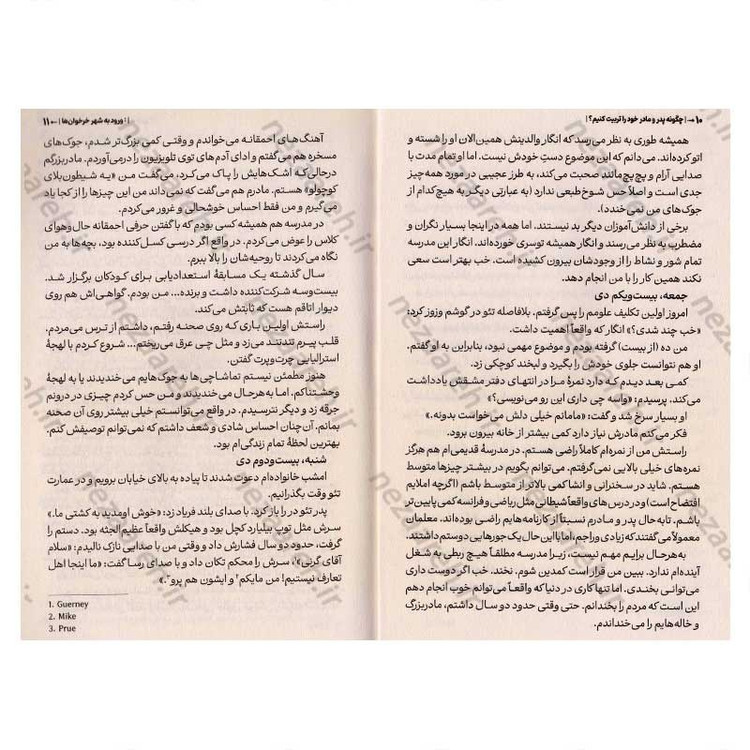 ۱۰ ← | چگونه پدر و مادر خود را تربیت کنیم؟ |
همیشه طوری به نظر می‌رسد که انگار والدینش همین‌الان او را شسته و
اتو کرده‌اند. می‌دانم که این موضوع دستِ خودش نیست. اما او تمام مدت با
صدایی آرام و پچ‌پچ‌مانند صحبت می‌کند، به طرز عجیبی در مورد همه‌چیز
جدی است و اصلاً حس شوخ‌طبعی ندارد (به عبارتی دیگر به هیچ‌کدام از
جوک‌های من نمی‌خندد).
برخی از دانش‌آموزان دیگر بد نیستند. اما همه در اینجا بسیار نگران و
مضطرب به نظر می‌رسند و انگار همیشه توسری خورده‌اند. انگار این مدرسه
تمام شور و نشاط را از وجودشان بیرون کشیده است. خب بهتر است سعی
نکند همین کار را با من انجام دهد.
جمعه، بیست‌ویکم دی
امروز اولین تکلیف علومم را پس گرفتم. بلافاصله تئو در گوشم وزوز کرد:
«خب چند شدی؟» انگار که واقعاً اهمیت داشت.
من ده (از بیست) گرفته بودم و موضوع مهمی نبود، بنابراین به او گفتم.
او هم نتوانست جلوی خودش را بگیرد و لبخند کوچکی زد.
کمی بعد دیدم که دارد نمرهٔ مرا در انتهای دفتر مشقش یادداشت
می‌کند. پرسیدم: «واسه چی داری این رو می‌نویسی؟»
او بسیار سرخ شد و گفت: «مامانم خیلی دلش می‌خواست بدونه.»
فکر می‌کنم مادرش نیاز دارد کمی بیشتر از خانه بیرون برود.
راستش من از نمره‌ام کاملاً راضی هستم. در مدرسهٔ قدیمی‌ام هم هرگز
نمره‌های خیلی بالایی نمی‌گرفتم. می‌توانم بگویم در بیشتر چیزها متوسط
هستم. شاید در سخنرانی و انشا کمی بالاتر از متوسط باشم (اگرچه املایم
افتضاح است) و در درس‌های واقعاً شیطانی مثل ریاضی و فرانسه کمی پایین‌تر
باشم. تابه‌حال پدر و مادرم نسبتاً از کارنامه‌هایم راضی بوده‌اند. معلمان
معمولاً می‌گفتند که زیادی وراجم، اما با این حال یک جورهایی دوستم داشتند.
به‌هرحال برایم مهم نیست، زیرا مدرسه مطلقاً هیچ ربطی به شغل
آینده‌ام ندارد. ببین من قرار است کمدین شوم. نخند. خب اگر دوست داری
می‌توانی بخندی. اما تنها کاری در دنیا که واقعاً می‌توانم خوب انجام دهم
این است که مردم را بخندانم. حتی وقتی حدود دو سال داشتم، مادربزرگ
و خاله‌هایم را می‌خنداندم.
| ورود به شهر خرخوان‌ها | → ۱۱
آهنگ‌های احمقانه می‌خواندم و وقتی کمی بزرگ‌تر شدم، جوک‌های
مسخره هم می‌گفتم و ادای آدم‌های توی تلویزیون را درمی‌آوردم. مادربزرگم
درحالی‌که اشک‌هایش را پاک می‌کرد، می‌گفت من «یه شیطون‌بلای
کوچولو» هستم. مادرم هم می‌گفت که نمی‌داند من این چیزها را از کجا یاد
می‌گیرم و من فقط احساس خوشحالی و غرور می‌کردم.
در مدرسه هم همیشه کسی بودم که با گفتن حرفی احمقانه حال‌وهوای
کلاس را عوض می‌کردم. در واقع اگر درسی کسل‌کننده بود، بچه‌ها به من
نگاه می‌کردند تا روحیه‌شان را بالا ببرم.
سال گذشته یک مسابقهٔ استعدادیابی برای کودکان برگزار شد.
بیست‌وسه شرکت‌کننده داشت و برنده... من بودم. گواهی‌اش هم روی
دیوار اتاقم هست که ثابتش می‌کند.
راستش اولین باری که روی صحنه رفتم، داشتم از ترس می‌مردم.
قلبم تندتند می‌زد و مثل چی عرق می‌ریختم... شروع کردم با لهجهٔ
استرالیایی چرت‌وپرت گفتن.
هنوز مطمئن نیستم تماشاچی‌ها به جوک‌هایم می‌خندیدند یا به لهجهٔ
وحشتناکم. اما به‌هرحال می‌خندیدند و من حس کردم چیزی در درونم
جرقه زد و دیگر نترسیدم. در واقع می‌توانستم خیلی بیشتر روی آن صحنه
بمانم. آن‌چنان احساس شادی و شعف داشتم که نمی‌توانم توصیفش کنم.
بهترین لحظهٔ تمام زندگی‌ام بود.
شنبه، بیست‌ودوم دی
امشب خانواده‌ام دعوت شدند تا پیاده به بالای خیابان برویم و در عمارت
تئو وقت بگذرانیم.
پدر تئو در را باز کرد. با صدای بلند فریاد زد: «خوش اومدید به کشتی ما.»
سرش مثل توپ بیلیارد کچل بود و هیکلش واقعاً عظیم‌الجثه بود. دستم را
گرفت، حدود دو سال فشارش داد و وقتی من با صدایی نازک نالیدم: «سلام
آقای گرنی¹»، سرش را محکم تکان داد و با صدای رسا گفت: «ما اینجا اهل
تعارف نیستیم! من مایکم² و ایشون هم پرو³.»
1. Guerney
2. Mike
3. Prue
nezaareh.ir